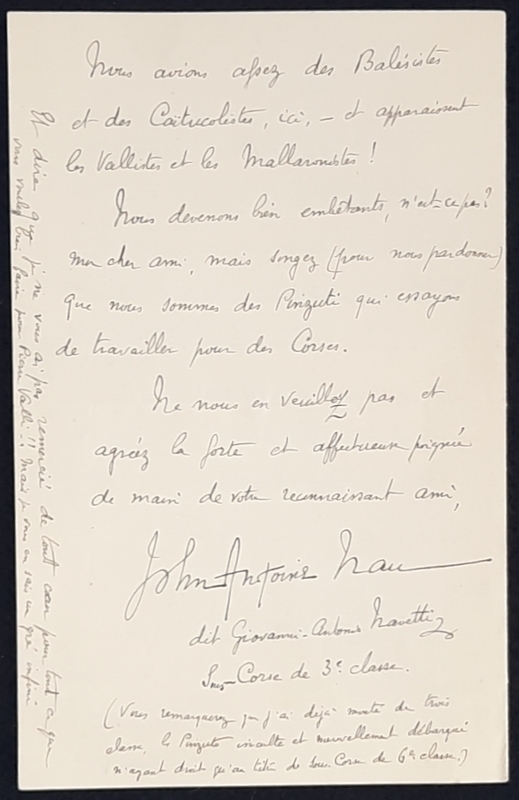 Nous avions assez des Balésistes
et des Caïtucolistes, ici, — et apparaissent
les Vallistes et les Mallaronistes !
Nous devenons bien embêtants, n'est-ce pas?
mon cher ami, mais songez (pour nous pardonner)
que nous sommes des Pinzuti qui essayons
de travailler pour des Corses.
Ne nous en veuillez pas et
agréez la forte et affectueuse poignée
de main de votre reconnaissant ami,
John-Antoine Nau
dit Giovanni-Antonio Navetti
Sous-Corse de 3e classe.
(Vous remarquerez que j'ai déjà monté de trois
classes, le Pinzuto inculte et nouvellement débarqué
n'ayant droit qu'au titre de Sous-Corse de 6e classe.)
Et dire que je ne vous ai pas remercié de tout cœur pour tout ce que
vous voulez bien faire pour Pierre Valli !! Mais je vous en sais un gré infini